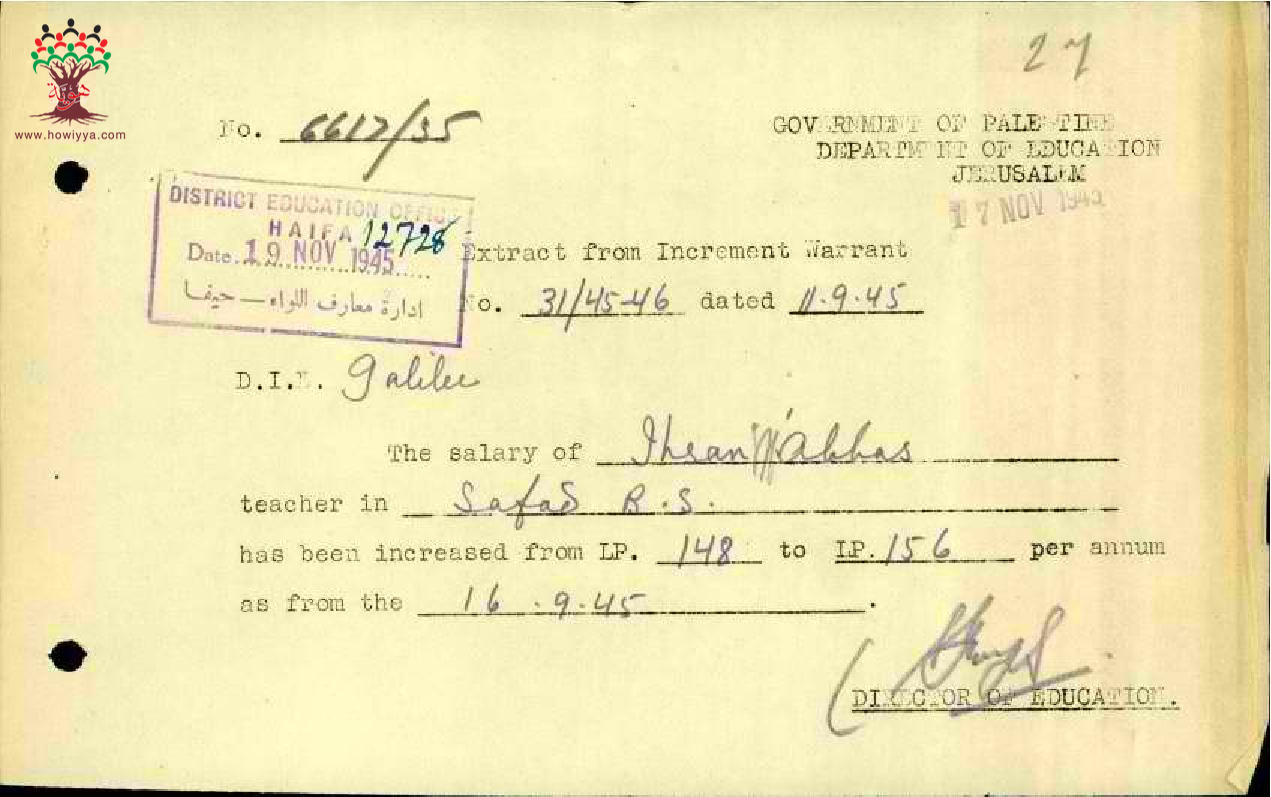 27
هوية
www.howiyya.com
No. 6617/35
GOVERNMENT OF PALESTINE
DEPARTMENT OF EDUCATION
JERUSALEM
17 NOV 1945
DISTRICT EDUCATION OFFICE
HAIFA 12728
Date. 19 NOV 1945
ادارة معارف اللواء — حيفا
Extract from Increment Warrant
No. 31/45-46 dated 11.9.45
D.I.E. Galilee
The salary of Ihsan Abbas
teacher in Safad B.S.
has been increased from LP. 148 to LP. 156 per annum
as from the 16.9.45.
DIRECTOR OF EDUCATION.